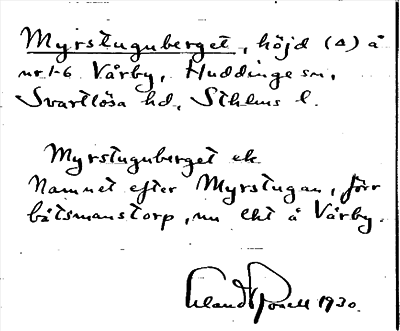 Myrstuguberget, höjd (Δ) å
nr 1-6 Vårby, Huddinge sn,
Svartlösa hd, Sthlms l.
Myrstuguberget ek.
Namnet efter Myrstugan, förr
båtsmanstorp, nu lht å Vårby.
Erland Rosell 1930.